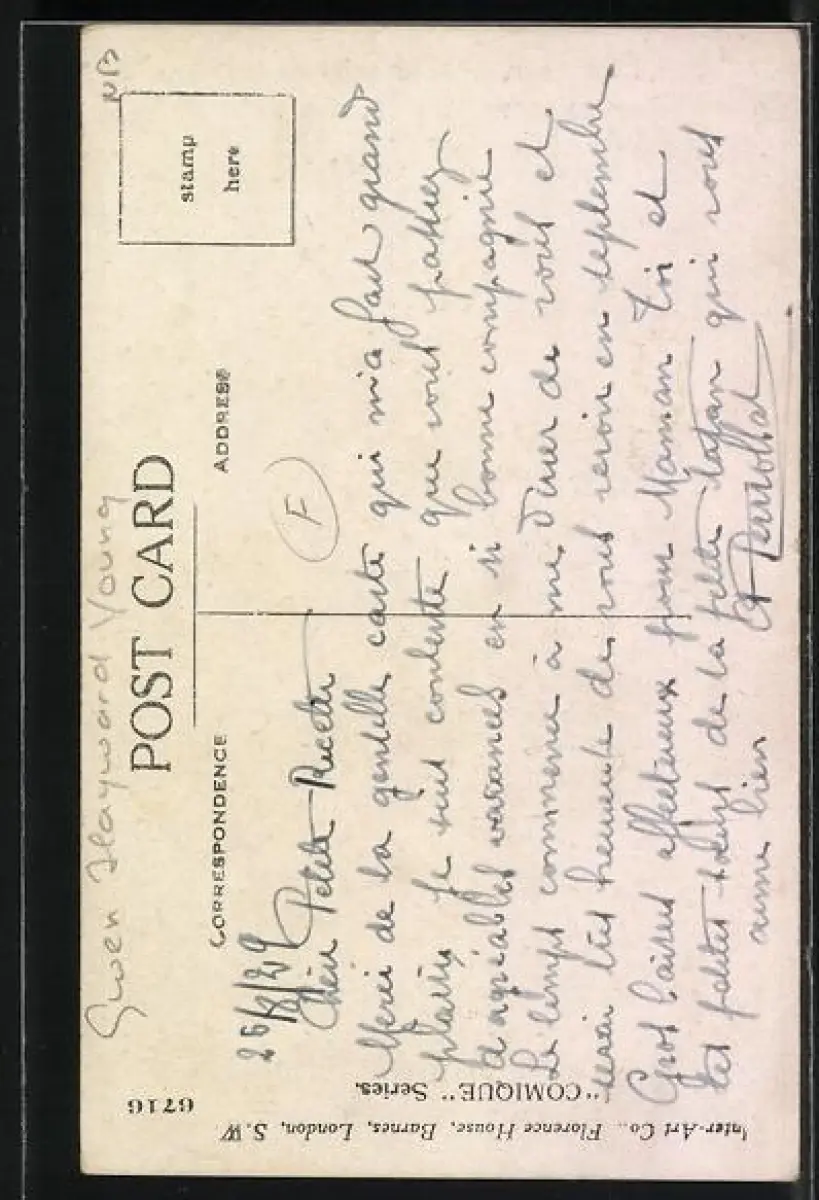 Gwen Hayward Young
NB
POST CARD
stamp
here
CORRESPONDENCE
ADDRESS
F
26/8/29
Chère Petite Ricette
Merci de la gentille carte qui m'a fait grand
plaisir, je suis contente que vous passiez
d'agréables vacances en si bonne compagnie
Le temps commence à me durer de vous et
serai très heureuse de vous revoir en septembre
Gros baisers affectueux pour Maman Toi et
les petites de la petite tatan qui vous
aime bien
Perrollat
6716
"COMIQUE" Series.
Inter-Art Co., Florence House, Barnes, London, S.W